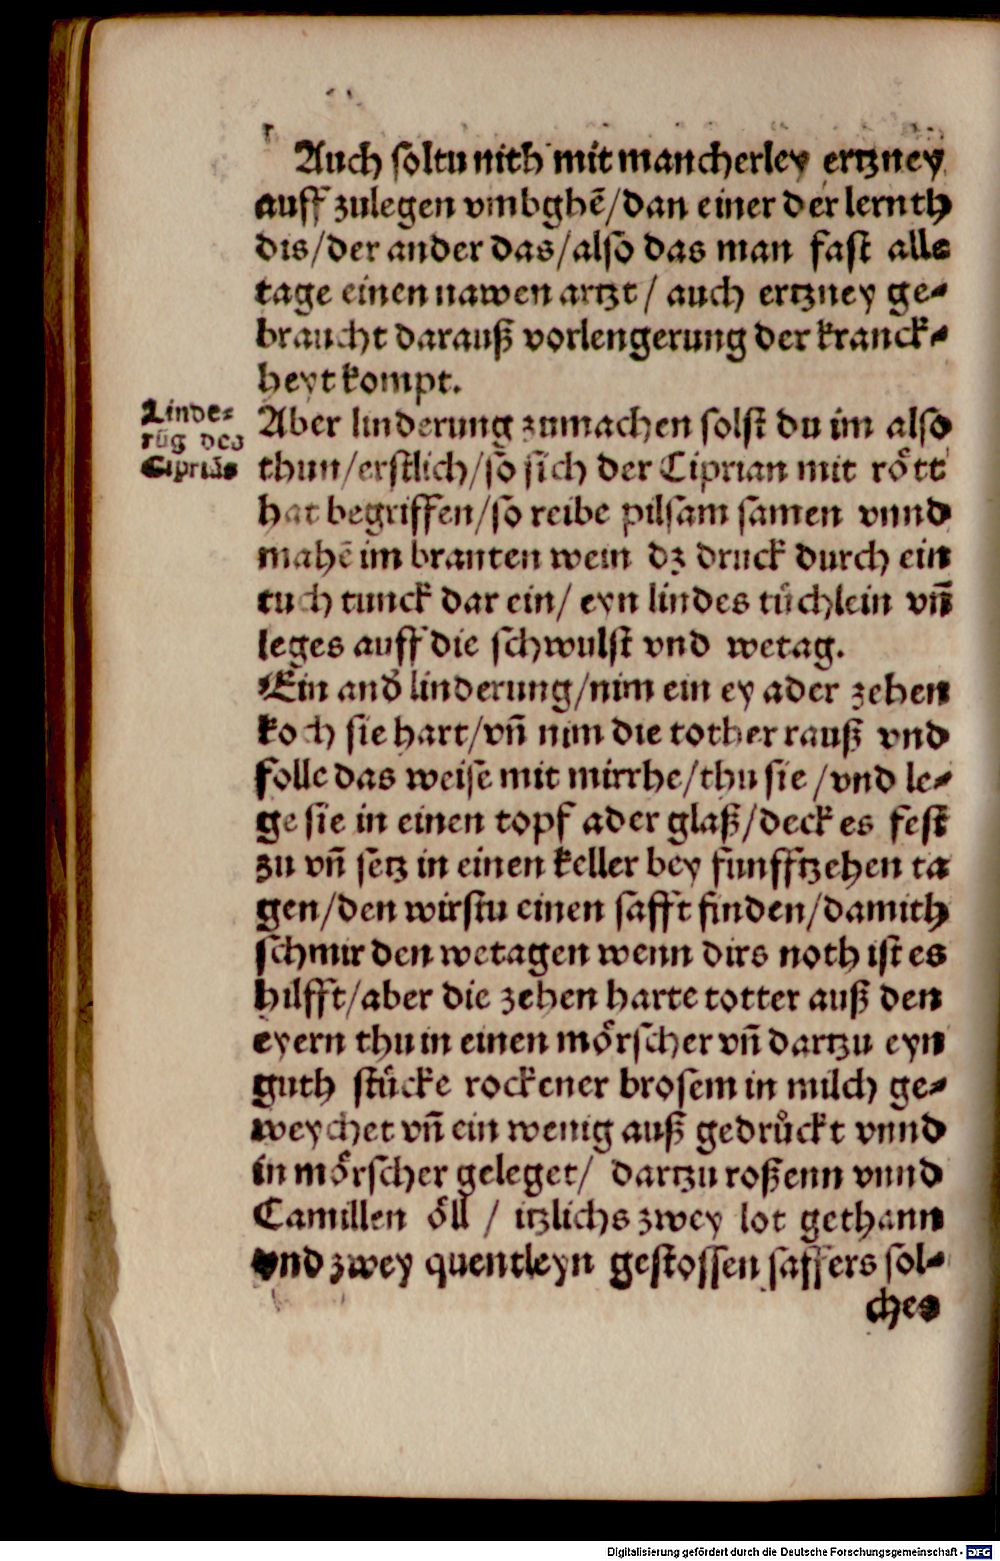 Auch soltu nith mit mancherley ertzney
auff zulegen vmbghē/dan einer der lernth
dis/der ander das/also das man fast alle
tage einen nawen artzt / auch ertzney ge⸗
braucht darauß vorlengerung der kranck⸗
heyt kompt.
Linde⸗
rūg des
Cipriās
Aber linderung zumachen solst du im also
thun/erstlich/so sich der Ciprian mit roͤtt
hat begriffen/so reibe pilsam samen vnnd
mahē im branten wein dz druck durch ein
tuch tunck dar ein/ eyn lindes tuͤchlein vn̄
leges auff die schwulst vnd wetag.
Ein and̕ linderung/nim ein ey ader zehen
koch sie hart/vn̄ nim die tother rauß vnd
folle das weise mit mirrhe/thu sie /vnd le⸗
ge sie in einen topf ader glaß/deck es fest
zu vn̄ setz in einen keller bey funfftzehen ta
gen/den wirstu einen safft finden/damith
schmir den wetagen wenn dirs noth ist es
hilfft/aber die zehen harte totter auß den
eyern thu in einen moͤrscher vn̄ dartzu eyn
guth stuͤcke rockener brosem in milch ge⸗
weychet vn̄ ein wenig auß gedruͤckt vnnd
in moͤrscher geleget/ dartzu roßenn vnnd
Camillen oͤll / itzlichs zwey lot gethann
vnd zwey quentleyn gestossen saffers sol⸗
ches
Digitalisierung gefördert durch die Deutsche Forschungsgemeinschaft - DFG